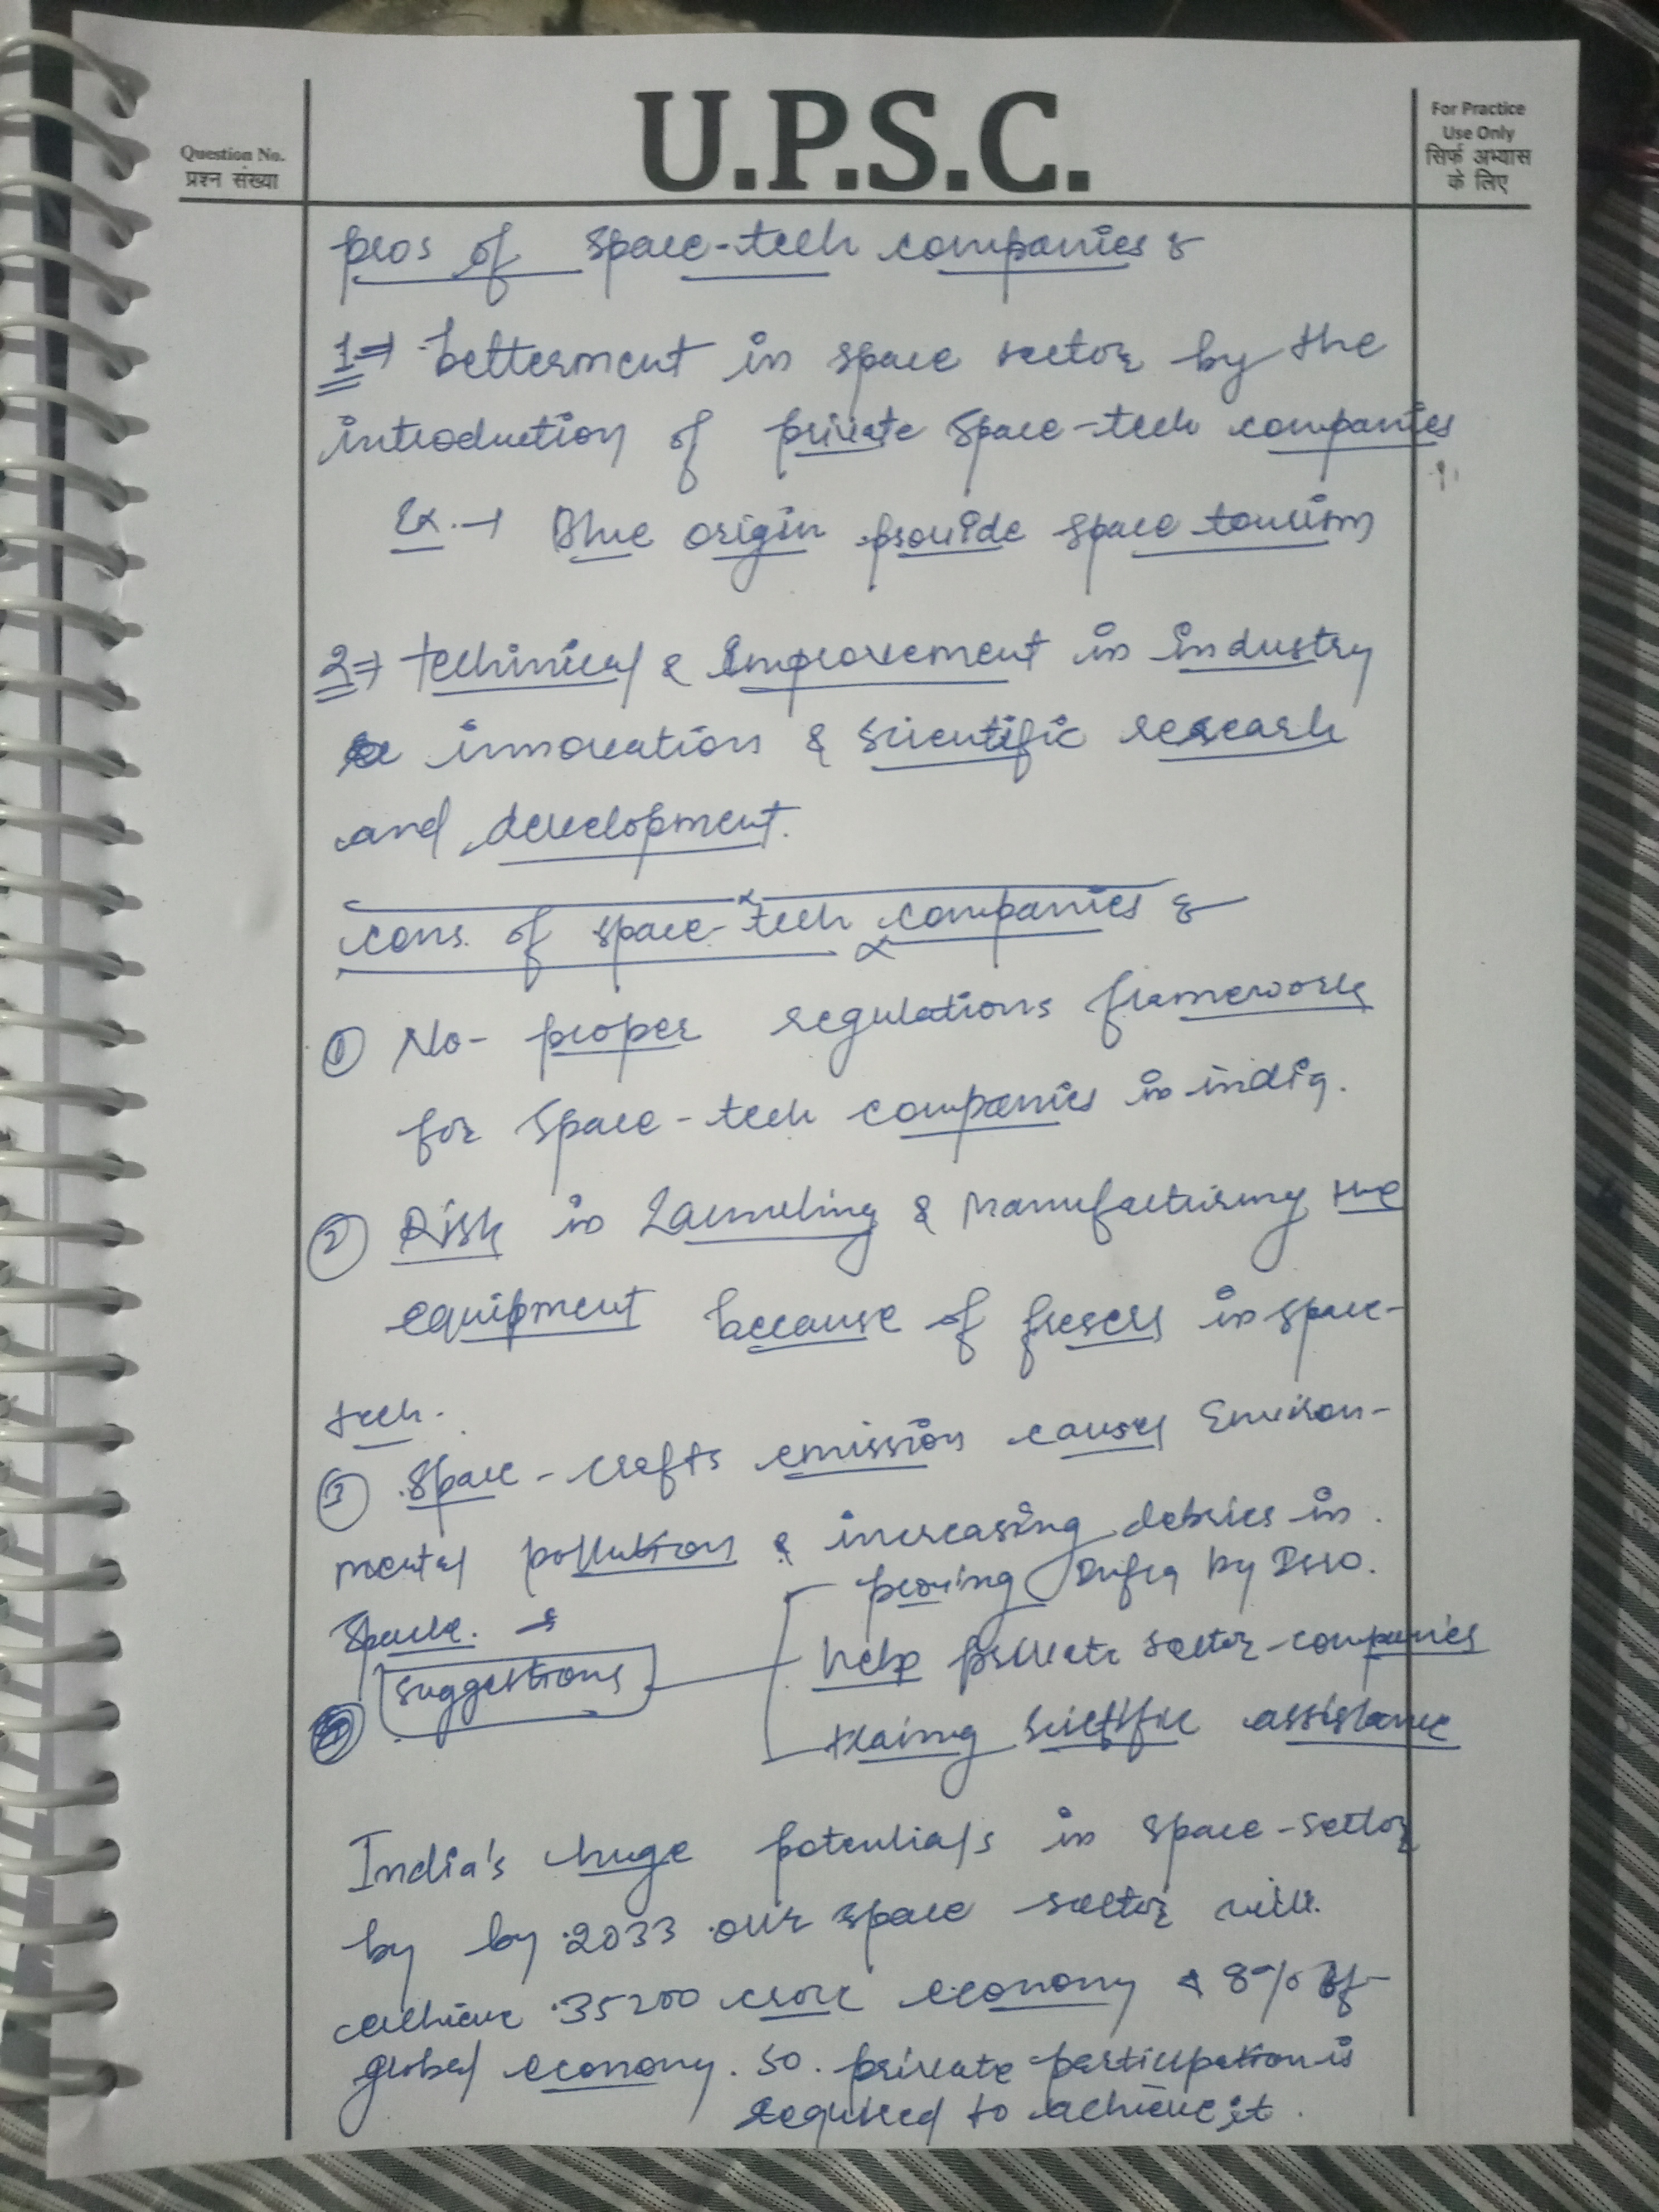 Question No.
प्रश्न संख्या
U.P.S.C.
For Practice
Use Only
सिर्फ अभ्यास
के लिए
pros of space-tech companies :
1⇒ betterment in space sector by the
introduction of private space-tech companies
Ex. → Blue origin provide space tourism
2⇒ techinical & Improvement in industry
innovation & scientific research
and development.
cons. of space-tech companies :
① No- proper regulations framework
for space-tech companies in india.
② Risk in Launching & Manufacturing the
equipment because of in space-
tech.
③ Space-crafts emission causes Environ-
mental pollution & increasing debries in
space. →
suggestions
Infra by Isro.
help private sector companies
traing scietific assistance
India's huge potentials in space-sector
by by 2033 our space sector will
achieve 35200 crore economy & 8% of
global economy. so. private participation is
required to achieve it.